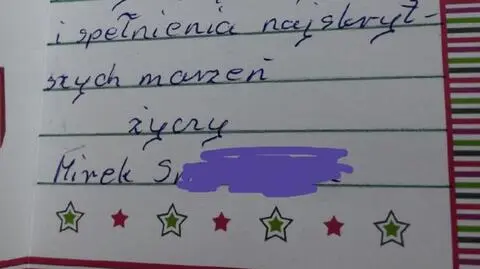 i spełnienia najskryt-
szych marzeń
życzy
Mirek S